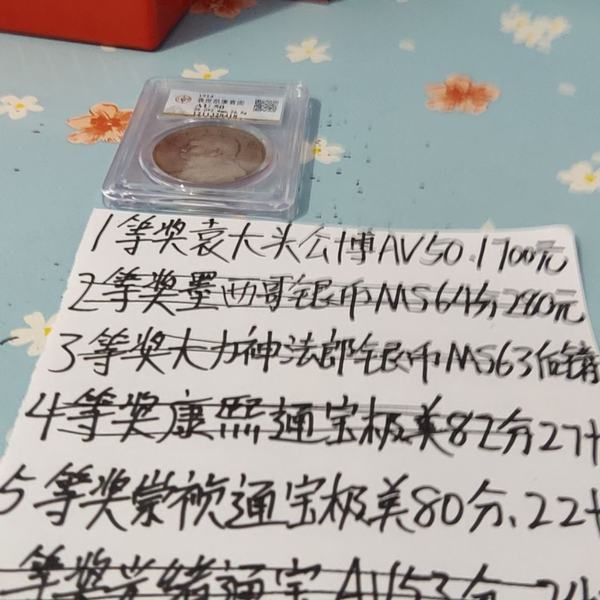 1914
AU 50
1等奖袁大头公博AV50.1700元
2等奖墨西哥银币MS64分280元
3等奖大力神法郎银币MS63
4等奖康熙通宝极美82分27
5等奖崇祯通宝极美80分、22
等奖光绪通宝AV53分